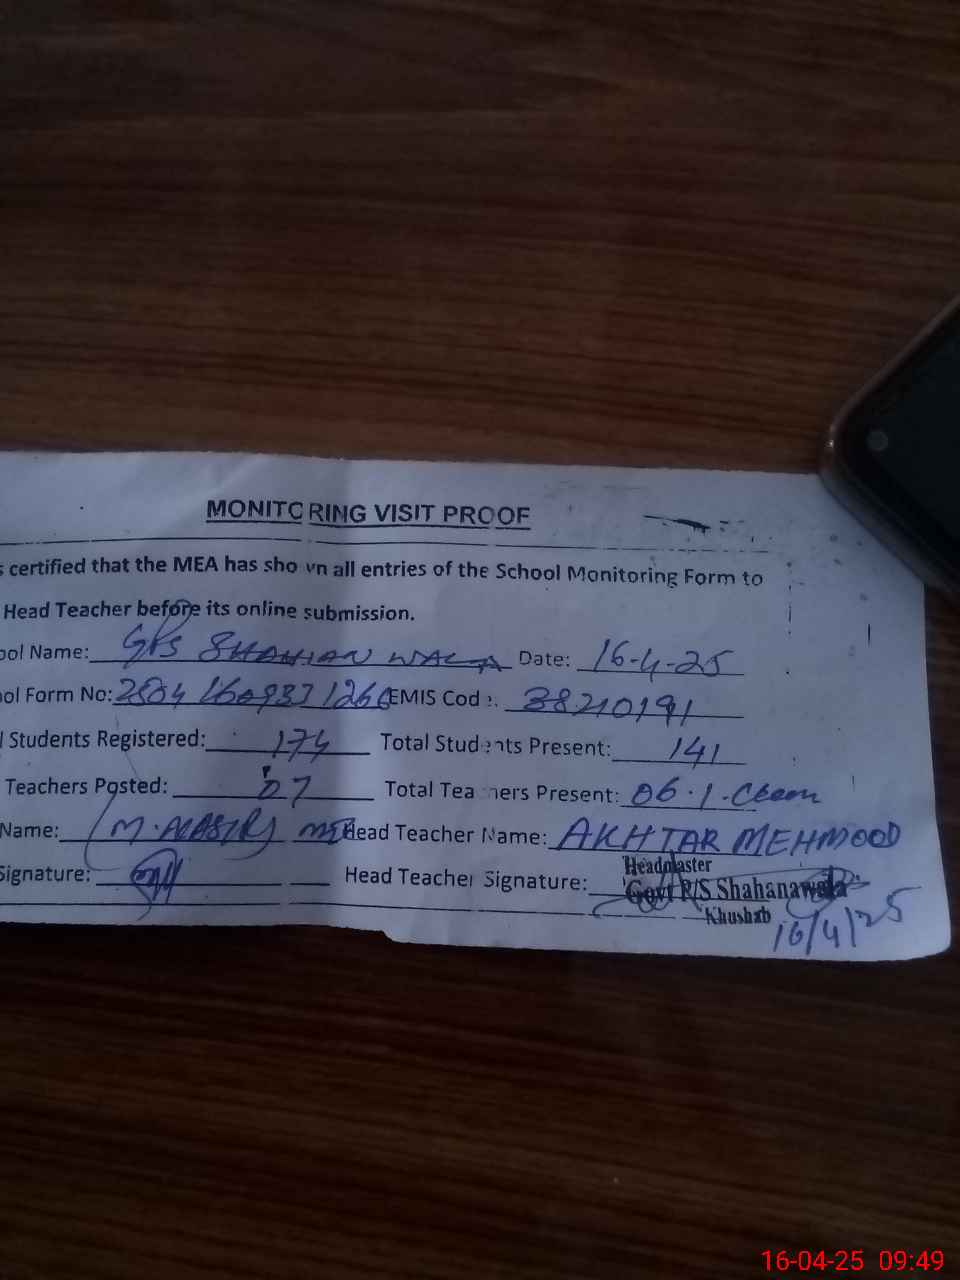 MONITORING VISIT PROOF
s certified that the MEA has shown all entries of the School Monitoring Form to
Head Teacher before its online submission.
ool Name: GPS SHAHIAN WALA Date: 16-4-25
ool Form No: EMIS Code: 38210191
l Students Registered: 174 Total Students Present: 141
Teachers Posted: 07 Total Teachers Present: 06.1.
Name: Head Teacher Name: AKHTAR MEHMOOD
Signature: Head Teacher Signature:
Headmaster
Govt P/S Shahanawala
Khushab
16/4/25
16-04-25 09:49